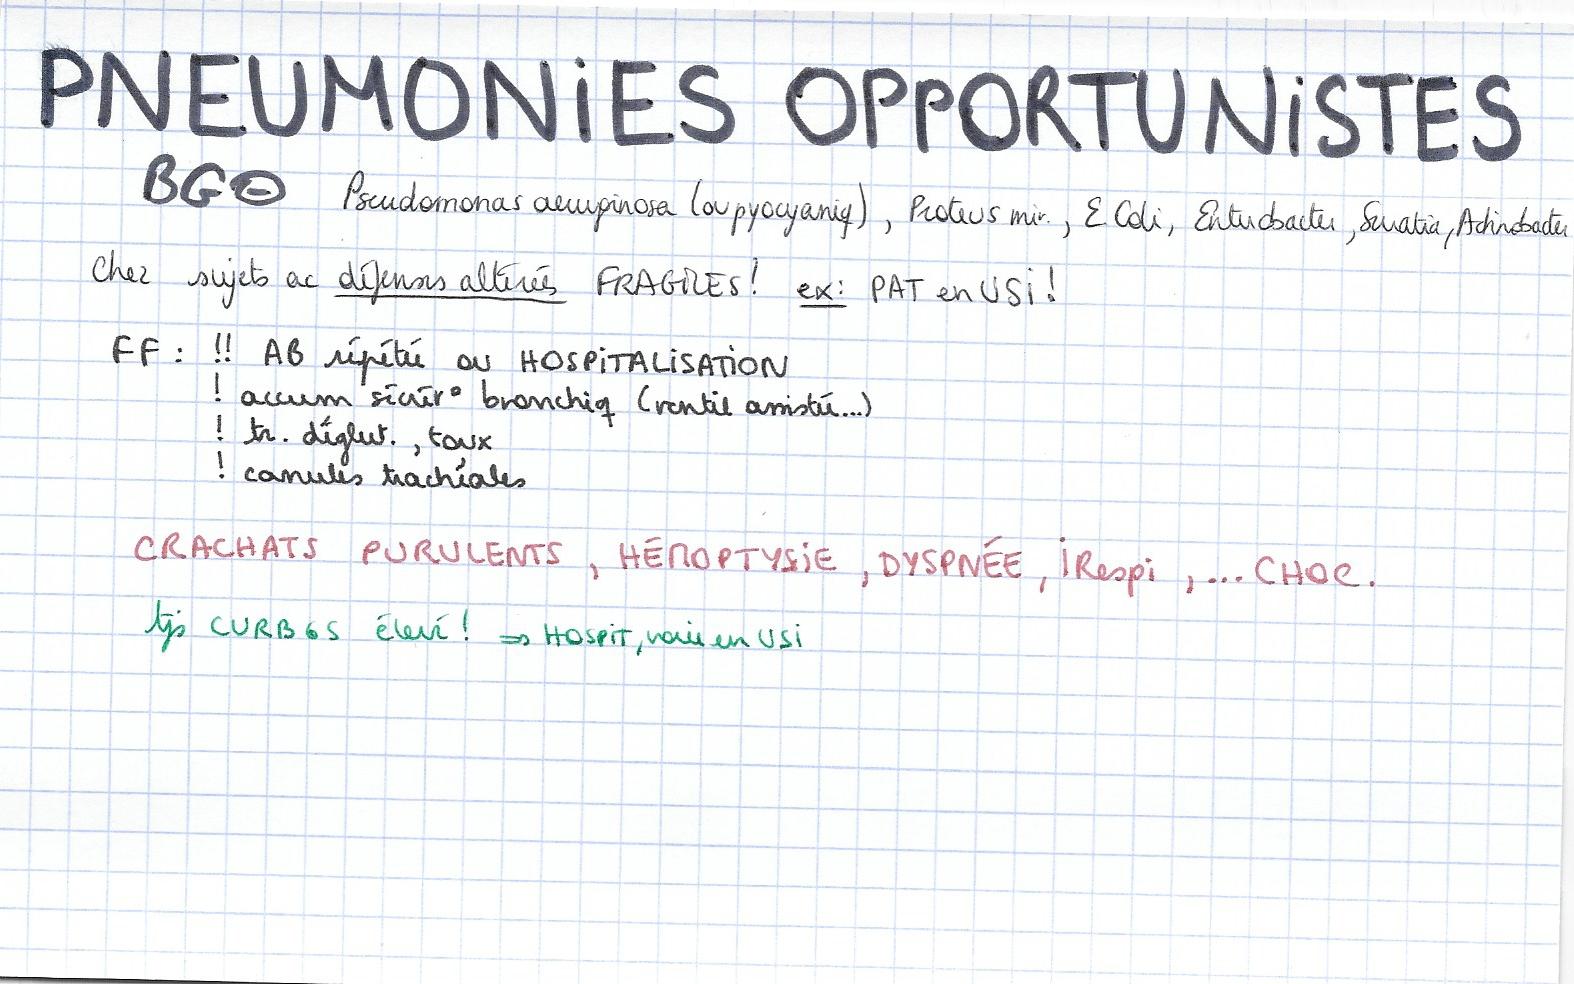 PNEUMONIES OPPORTUNISTES
BG⊖ Pseudomonas aeruginosa (ou pyocyaniq), Proteus mir., E Coli, Enterobacter, Serratia, Acinobacter
Chez sujets ac défenses altérées FRAGILES! ex: PAT en USi!
FF: !! AB répétée ou HOSPiTALiSATiON
! accum sécrét° bronchiq (ventil assistée...)
! tr. déglut., toux
! canules trachéales
CRACHATS PURULENTS, HÉMOPTYSiE, DYSPNÉE, iRespi, ... CHOC.
tjs CURB65 élevé! => HOSPiT, voire en USi